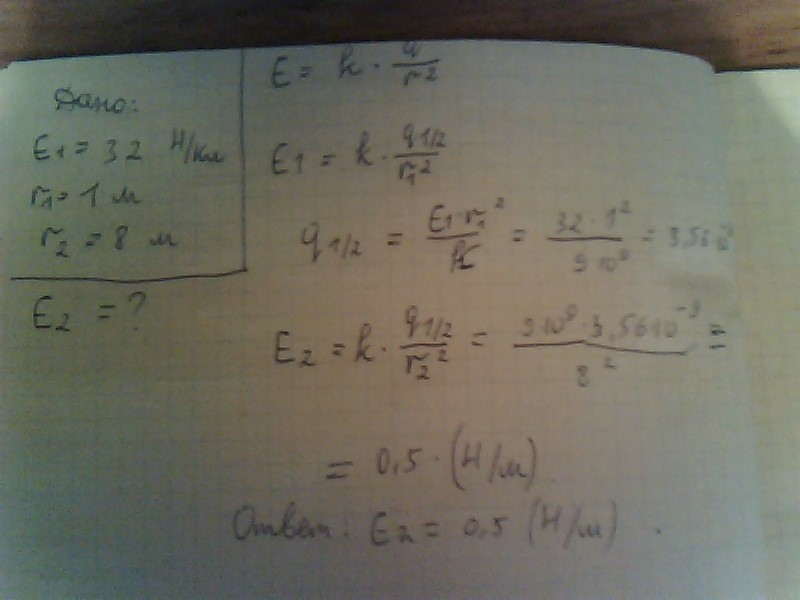 Дано:
E1 = 32 Н/Кл
r1 = 1 м
r2 = 8 м
E2 = ?
E = k · q/r²
E1 = k · q1/2 / r1²
q1/2 = E1·r1² / k = 32·1² / 9·10⁹ = 3,56·10
E2 = k · q1/2 / r2² = 9·10⁹·3,56·10⁻⁹ / 8² =
= 0,5 · (Н/м)
Ответ: E2 = 0,5 (Н/м).